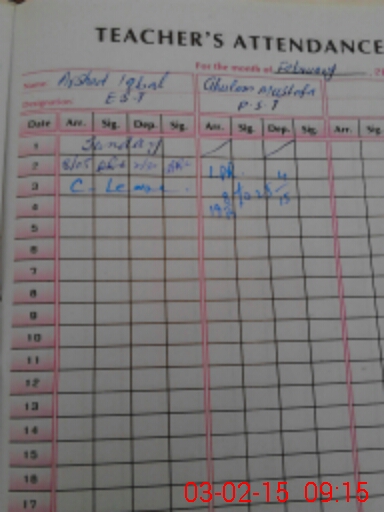 TEACHER'S ATTENDANCE
For the month of February
Name Arshad Iqbal Ghulam Mustafa
Designation E.S.T P.S.T
Date Arr. Sig. Dep. Sig. Arr. Sig. Dep. Sig. Arr. Sig.
1 Sunday
2 8/05
3 C. Leave
4
5
6
7
8
9
10
11
12
13
14
15
16
17
03-02-15 09:15